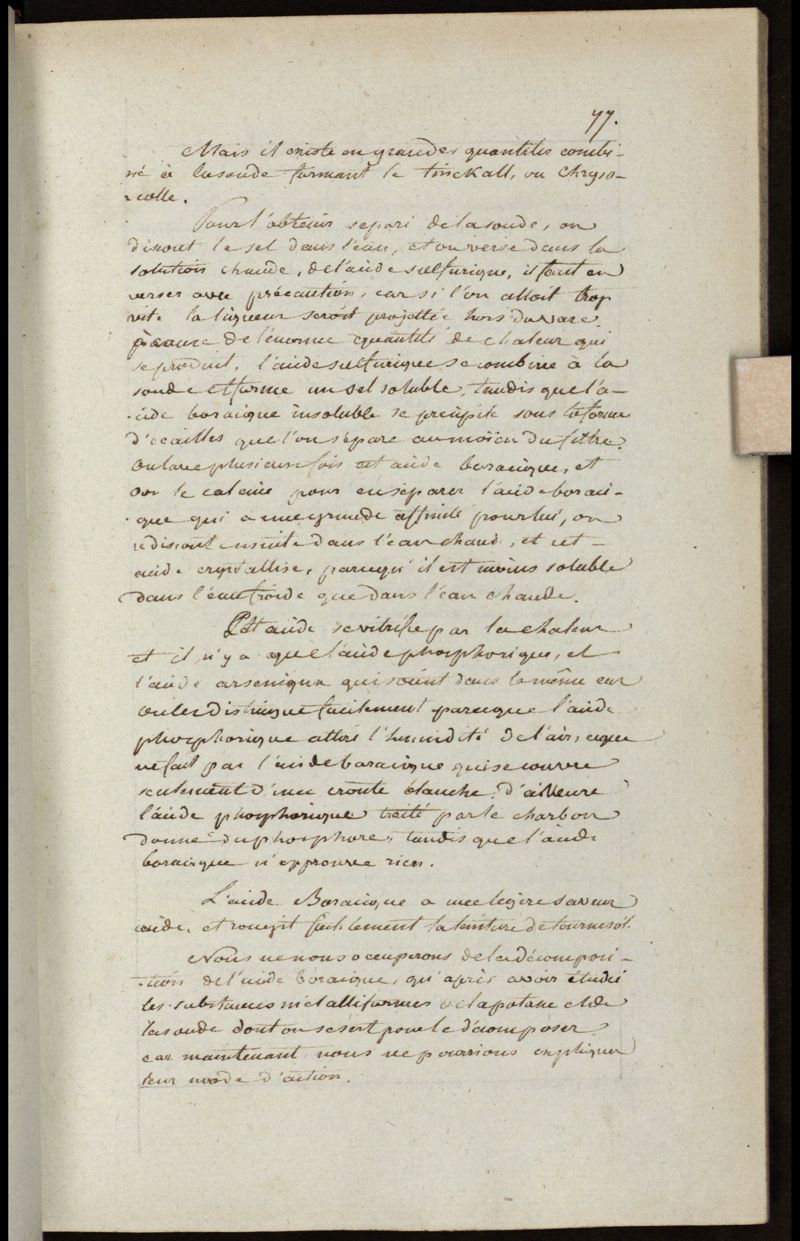 77.
Mais il existe en grandes quantités combi-
né à la soude formant le tinckall, ou chryso-
-colle.
Pour l'obtenir séparé de la soude, on
dissout le sel dans l'eau, et on verse dans la
solution chaude, de l'acide sulfurique, il faut en
verser avec précaution, car si l'on alloit trop
vite la liqueur seroit projettée hors du vase,
à cause de l'énorme quantité de chaleur qui
se produit. l'acide sulfurique se combine à la
soude et forme un sel soluble, tandis que l'a-
-cide boracique insoluble se précipite sous la forme
d'écailles que l'on sépare au moïen du filtre.
On lave plusieurs fois cet acide boracique, et
on le calcine pour en séparer l'acide boraci-
-que qui a une grande affinité pour lui, on
redissout ensuite dans l'eau chaude, et cet
acide crystallise, parcequ'il est moins soluble
dans l'eau froide que dans l'eau chaude.
Cet acide se vitrifie par la chaleur
et il n'y a que l'acide phosphorique, et
l'acide arsenique qui soient dans le même cas
on les distingue facilement parceque l'acide
phosphorique attire l'humidité de l'air, ce que
ne fait pas l'acide boracique qui se couvre
seulement d'une croute blanche. d'ailleurs
l'acide phosphorique traité par le charbon
donne du phosphore, tandis que l'acide
boracique n'epprouve rien.
L'acide Boracique a une legère saveur
acide, et rougit facilement la teinture de tournesol.
Nous ne nous occuperons de la décomposi-
-tion de l'acide boracique, qu'après avoir étudié
les substances métalliformes de la potasse et de
la soude dont on se sert pour le décomposer
car maintenant nous ne pourrions expliquer
leur mode d'action.